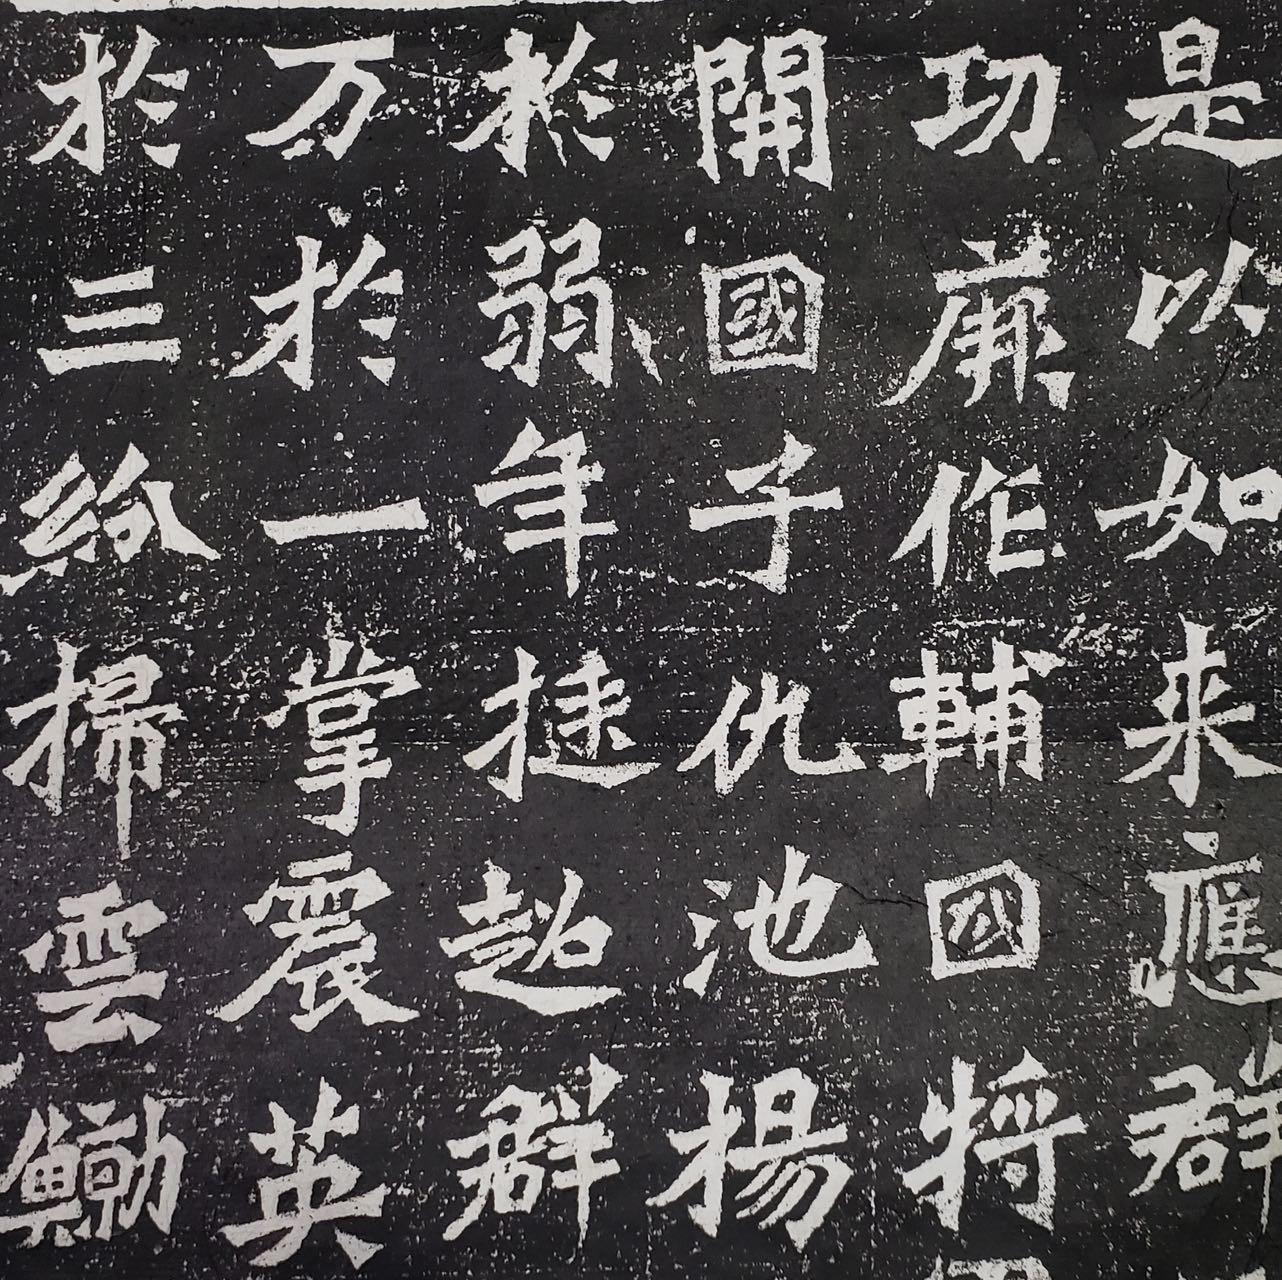 是以如来應群
功厥作輔國將
開國子仇池揚
於弱年挺超群
万於一掌震英
於三紛掃雲鯨